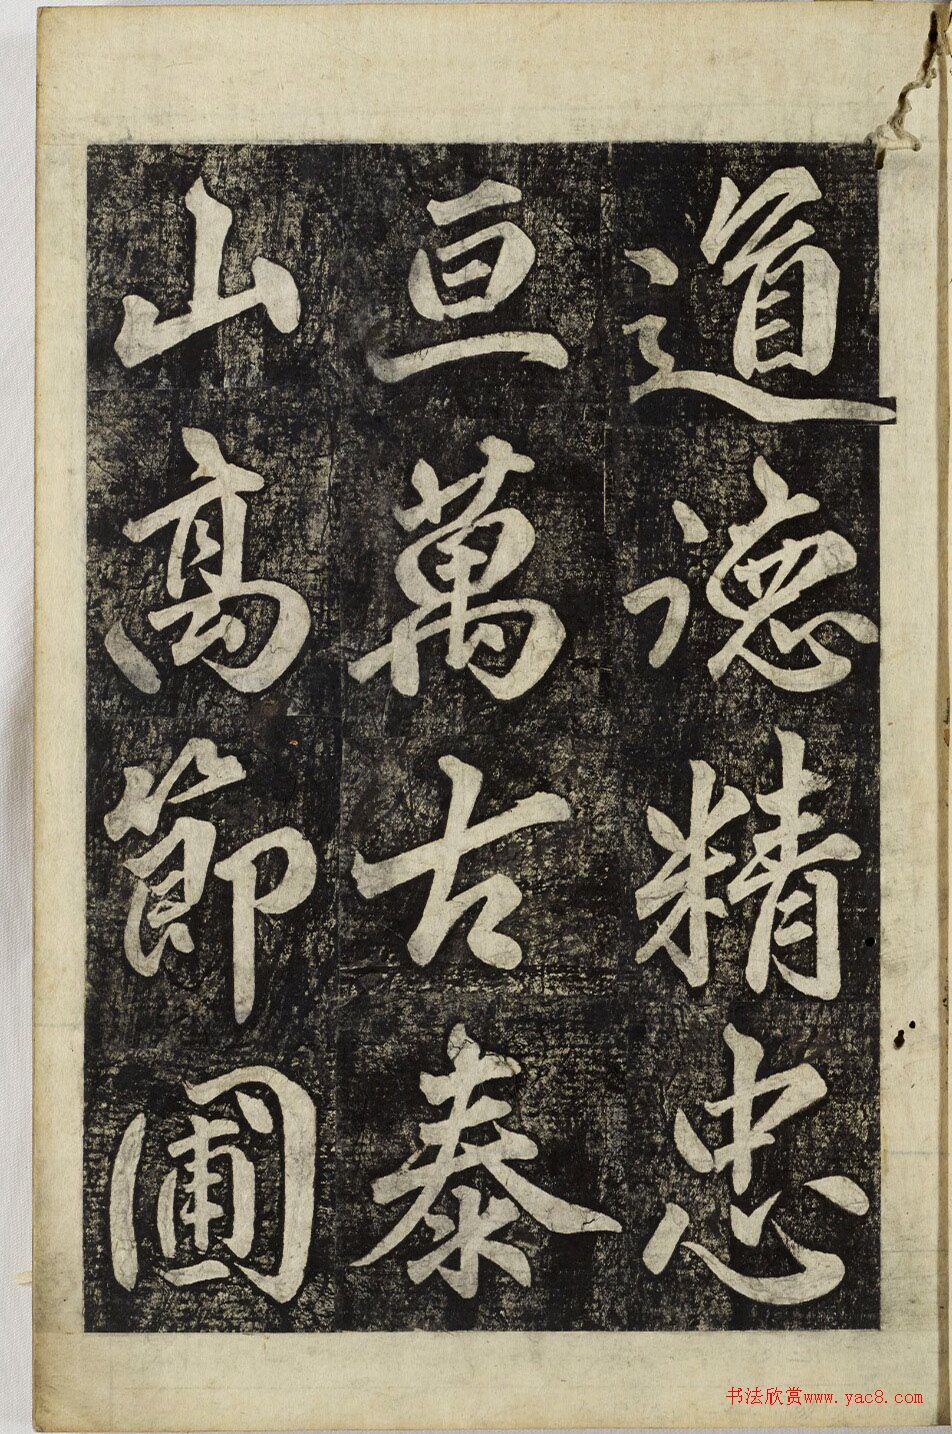 道德精忠
亘萬古泰
山高節圃
书法欣赏www.yac8.com